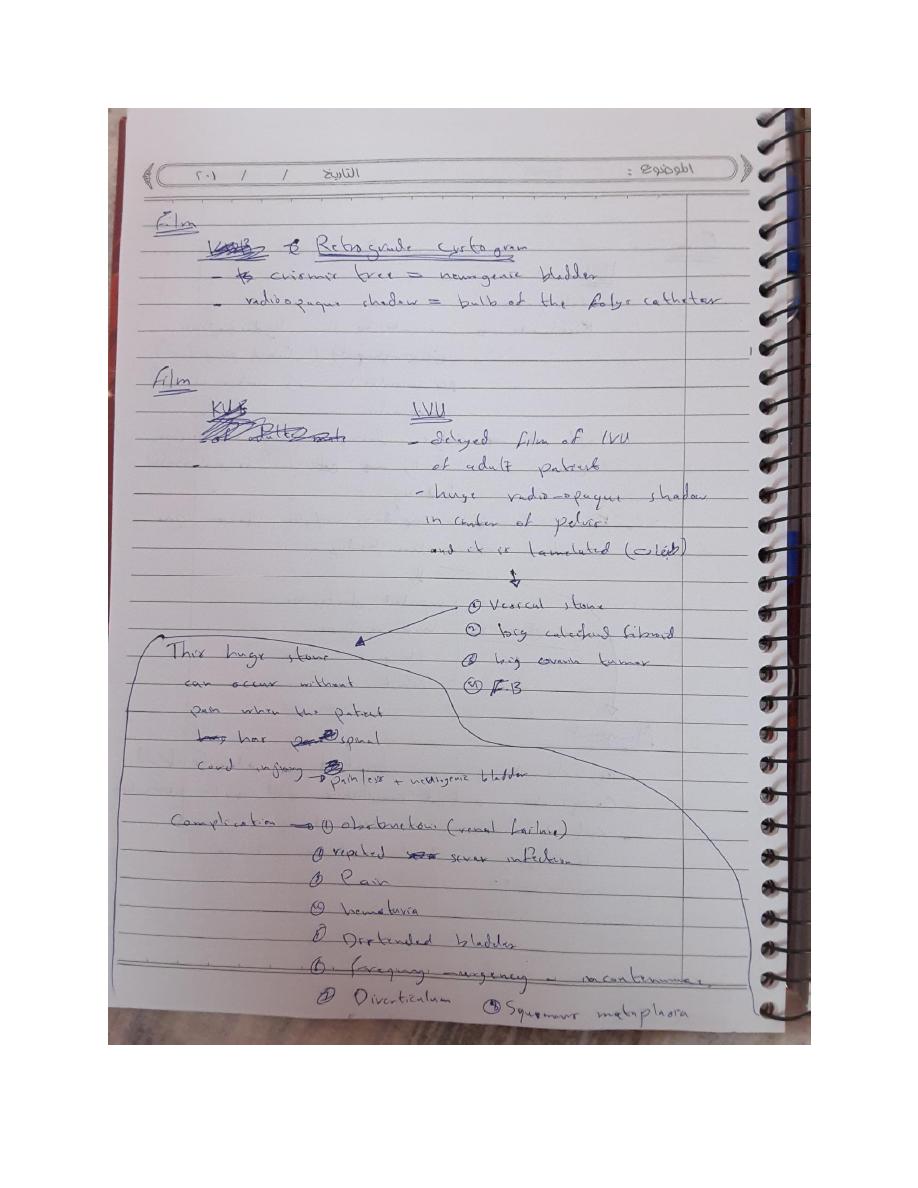 الموضوع :
التاريخ / / ٢٠١
Film
Retrograde cystogram
- crismir tree = neurogenic bladder
- radioopaque shadow = bulb of the folys catheter
Film
KUB
IVU
- delayed film of IVU
of adult patient
- huge radio-opaque shadow
in center of pelvis
and it is lamelated (طبقات)
① Vesical stone
② big calcified fibroid
③ big ovarin tumor
④ F.B
This huge stone
can occur without
pain when the patient
has spinal
cord injury
painless + neurogenic bladder
Complication → ① obstruction (renal failure)
② repited sever infection
③ Pain
④ hematuria
⑤ Distended bladder
⑥ frequency - urgency - incontinunce,
⑦ Diverticulum
⑧ Squemous metaplasia